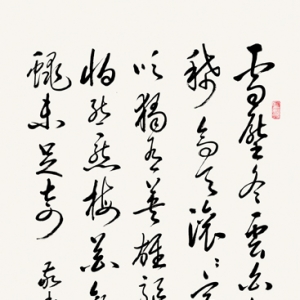 雪壓冬雲白
稀高天滚滚寒
吹獨有英雄驅
怕熊羆梅花歡
蠅未足奇